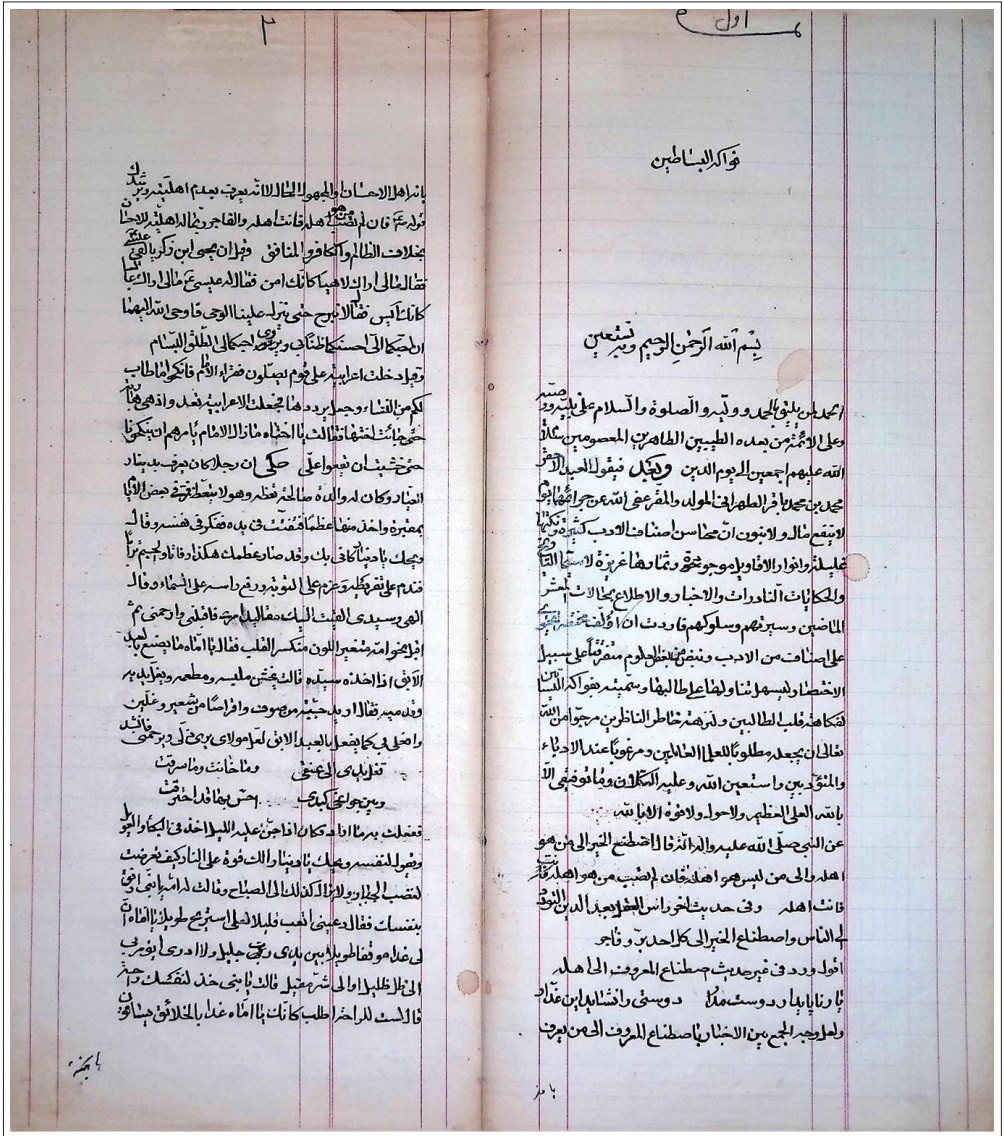 اول
فواكه البساتين
بسم الله الرحمن الرحيم وبه نستعين
الحمد لمن يليق بالحمد ووليه والصلوة والسلام على نبيه ووصيه
وعلى الائمة من بعده الطيبين الطاهرين المعصومين سلام
الله عليهم اجمعين الى يوم الدين وبعد فيقول العبد الاحقر
محمد بن محمد باقر الطهراني المولد والمقر عفى الله عن جرائمهما يوم
لا ينفع مال ولا بنون ان محاسن اصناف الادب كثيرة ونكتها
قليلة وانوار الاقاويل موجودة وثمارها عزيزة لا سيما
والحكايات النادرات والاخبار والاطلاع بحالات
الماضين وسيرتهم وسلوكهم فاردت ان اؤلف مختصرا يحتوي
على اصناف من الادب ونبض من بعض العلوم متفرقا على سبيل
الاختصار ليسهل تناولها على طالبها وسميته بفواكه البساتين
لفكاهته قلب الطالبين ونزهته خاطر الناظرين مرجوا من الله
تعالى ان يجعله مطلوبا للعلماء العاملين ومرغوبا عند الادباء
والمتؤدبين واستعين الله وعليه التكلان وما توفيقي الا
بالله العلي العظيم ولا حول ولا قوة الا بالله
عن النبي صلى الله عليه واله انه قال اصطنع الخير الى من هو
اهله والى من ليس هو اهله فان لم تصب من هو اهله
فانت اهله وفي حديث اخر راس العقل بعد الدين التودد
الى الناس واصطناع الخير الى كل احد بر وفاجر
اقول ورد في غير حديث اصطناع المعروف الى اهله
يار ناپايدار دوست مدار دوستى را نشايد اين غدار
ولعل وجه الجمع بين الاخبار باصطناع المعروف الى من يعرف
٢
بانه اهل الاحسان او المجهول الحال لا انه يعرف بعدم اهليته ويرشدك
قوله ع فان لم تصب من هو اهله فانت اهله والفاجر اهلية للاحسان
بخلاف الظالم والكافر والمنافق وقيل ان يحيى ابن زكريا لقي عيسى
فقال مالي اراك لاهيا كانك امن فقال له عيسى ع مالي اراك عابسا
كانك آيس فقالا لا نبرح حتى ينزل علينا الوحي فاوحى الله اليهما
ان احبكما الي احسنكما ظنا بي ويروى احبكما الي الطلق البسام
وقيل دخلت اعرابية على قوم يصلون فقراء الامام فانكحوا ما طاب
لكم من النساء وجعل يرددها فجعلت الاعرابية تعد و
حتى جائت اختها فقالت يا اختاه ما زال الامام يامرهم ان ينكحونا
حتى خشيت ان يقعوا علي حكى ان رجلا كان يعرف بدينار
العيار وكان له والدة صالحة تعظه وهو لا يتعظ فمر في بعض الايام
بمقبرة واخذ منها عظما فتفتت في يده ففكر في نفسه وقال
ويحك يا دينار كاني بك وقد صار عظمك هكذا رفاتا والجسم ترابا
فندم على تفريطه وعزم على التوبة ورفع راسه على السماء وقال
الهي وسيدي القيت اليك مقاليد امري فاقبلني وارحمني ثم
اقبل نحو امه متغير اللون منكسر القلب فقال يا اماه ما يصنع بالعبد
الآبق اذا اخذه سيده قالت يخشن ملبسه ومطعمه ويغل يديه
وقدميه فقال اريد جبة من صوف واقراصا من شعير وغلين
وافعلي بي كما يفعل بالعبد الابق لعل مولاي يرى ذلي ويرحمني
تغل يدي الى عنقي وما خانت وما سرقت
وبين جوانحي كبدي احس بها قد احترقت
ففعلت به ما اراد فكان اذا جن عليه الليل اخذ في البكاء
ويقول لنفسه ويحك يا دينار الك قوة على النار كيف تعرضت
لغضب الجبار ولا يزال كذلك الى الصباح وقالت له امه يا بني ارفق
بنفسك فقال دعيني اتعب قليلا لعلي استريح طويلا يا اماه ان
لي غدا موقفا طويلا بين يدي رب جليل ولا ادري ايؤمر بي
الى ظل ظليل او الى شر مقيل قالت يا بني خذ لنفسك راحة
قال لست للراحة اطلب كانك يا اماه غدا بالخلائق يساقون